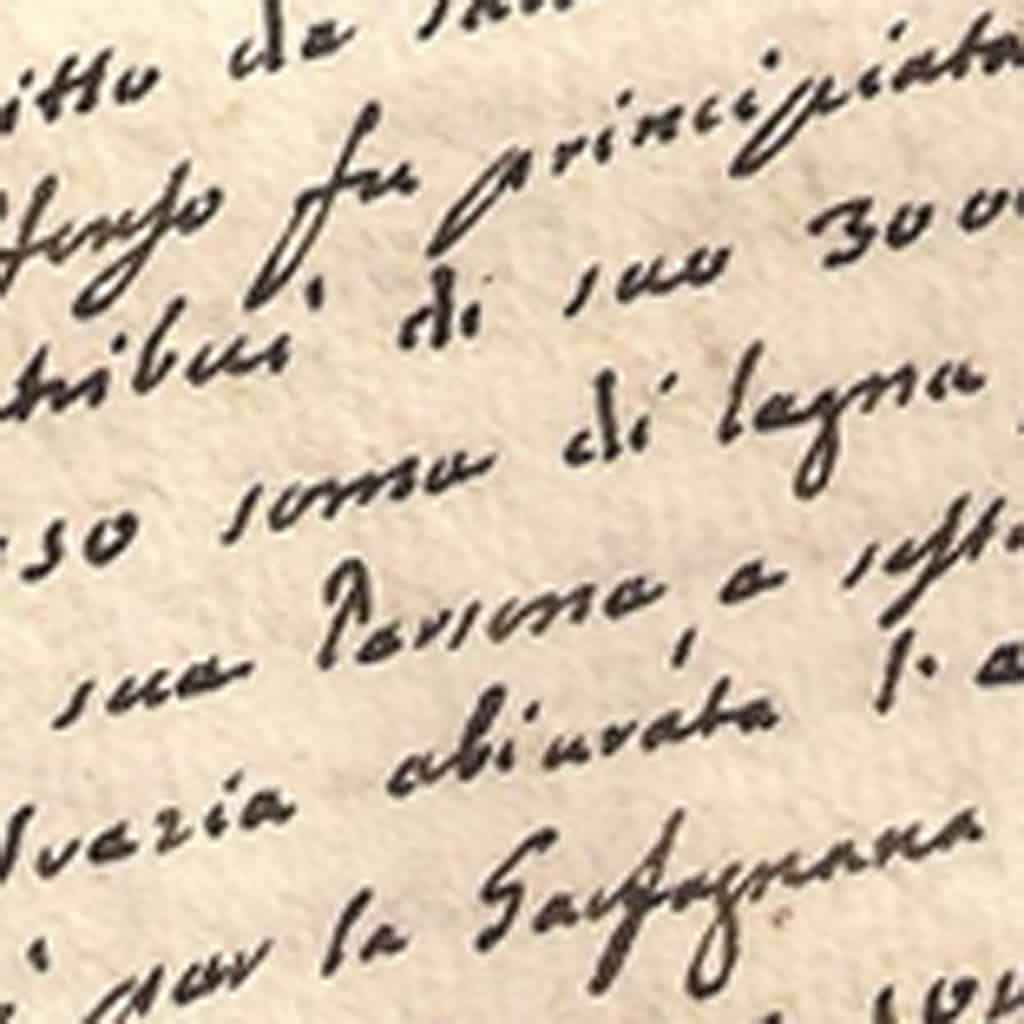 itto de
fonso fu principiata
tribui di suo 3000
so soma di legna
sua Persona, e
Svezia abiurata l. a
per la Garfagnana